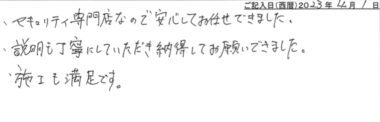 ご記入日(西暦)2023年4月1日
・セキュリティ専門店なので安心してお任せできました、
・説明も丁寧にしていただき納得してお願いできました。
・施工も満足です。